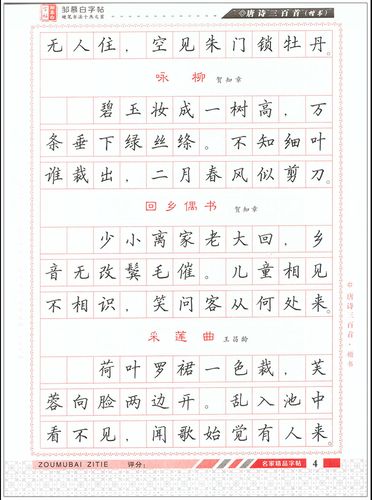 邹慕白字帖
硬笔书法十杰之首
唐诗三百首(楷书)
无人住，空见朱门锁牡丹。
咏柳 贺知章
碧玉妆成一树高，万
条垂下绿丝绦。不知细叶
谁裁出，二月春风似剪刀。
回乡偶书 贺知章
少小离家老大回，乡
音无改鬓毛催。儿童相见
不相识，笑问客从何处来。
采莲曲 王昌龄
荷叶罗裙一色裁，芙
蓉向脸两边开。乱入池中
看不见，闻歌始觉有人来。
唐诗三百首·楷书
ZOUMUBAI ZITIE 评分：
名家精品字帖 4